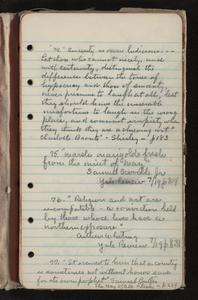 74. "Sincerity is never ludicrous . . .
Let those who cannot nicely, and
with certainty, distinguish the
difference between the tones of
hypocrisy and those of sincerity,
never presume to laugh at all, lest
they should have the miserable
misfortune to laugh in the wrong
place, and commit impiety when
they think they are achieving wit."
Charlotte Brontë - Shirley - p
75. "marsh marigolds fresh
from the mint of May"
Samuel Scoville Jr
Yale Review
76. "Religion and art are
incompatible - a conviction held
by those whose lives have a
northern exposure"
Arthur Whiting
Yale Review
77. "It seemed to him that in country
is sometimes not without honor save
for its own prophets" Samuel